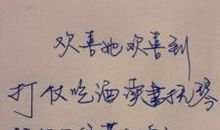 欢喜她欢喜到
打仗吃酒读书抚琴